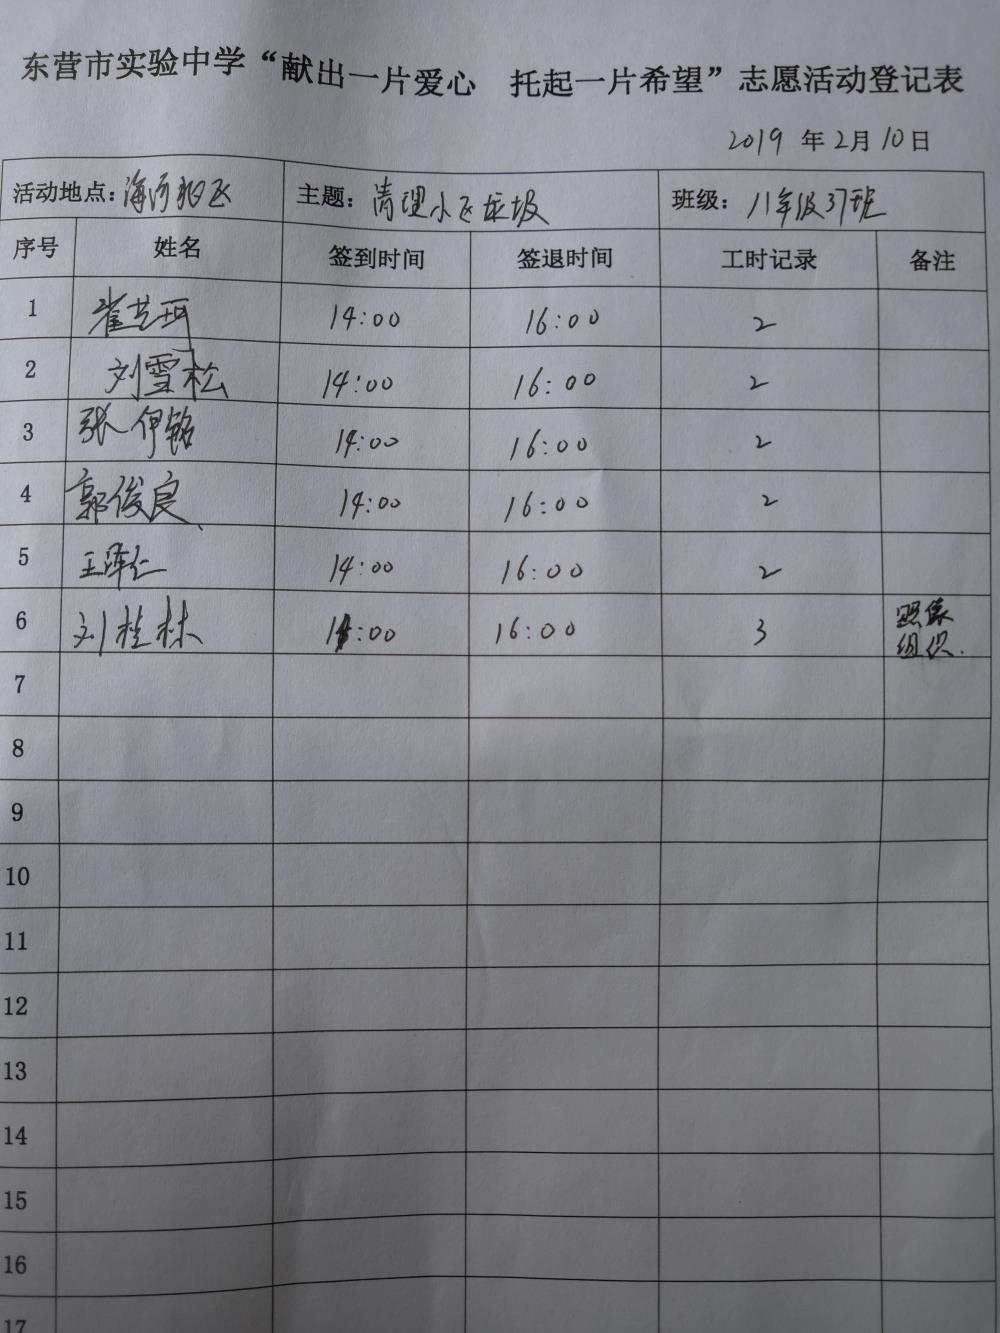 东营市实验中学“献出一片爱心 托起一片希望”志愿活动登记表
2019 年 2月 10日
活动地点: 海河 主题: 清理小区垃圾 班级: 八年级37班
序号 姓名 签到时间 签退时间 工时记录 备注
1 崔艺珂 14:00 16:00 2
2 刘雪松 14:00 16:00 2
3 张伊铭 14:00 16:00 2
4 郭俊良 14:00 16:00 2
5 王泽仁 14:00 16:00 2
6 刘桂林 :00 16:00 3 照像
组织.
7
8
9
10
11
12
13
14
15
16
17